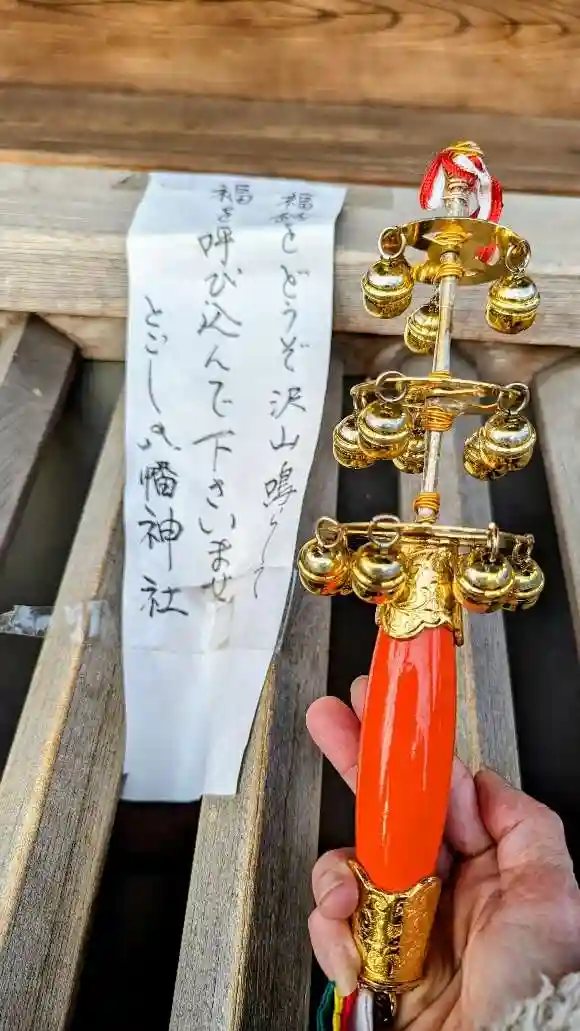 福鈴をどうぞ沢山鳴らして
福を呼び込んで下さいませ
とごし八幡神社